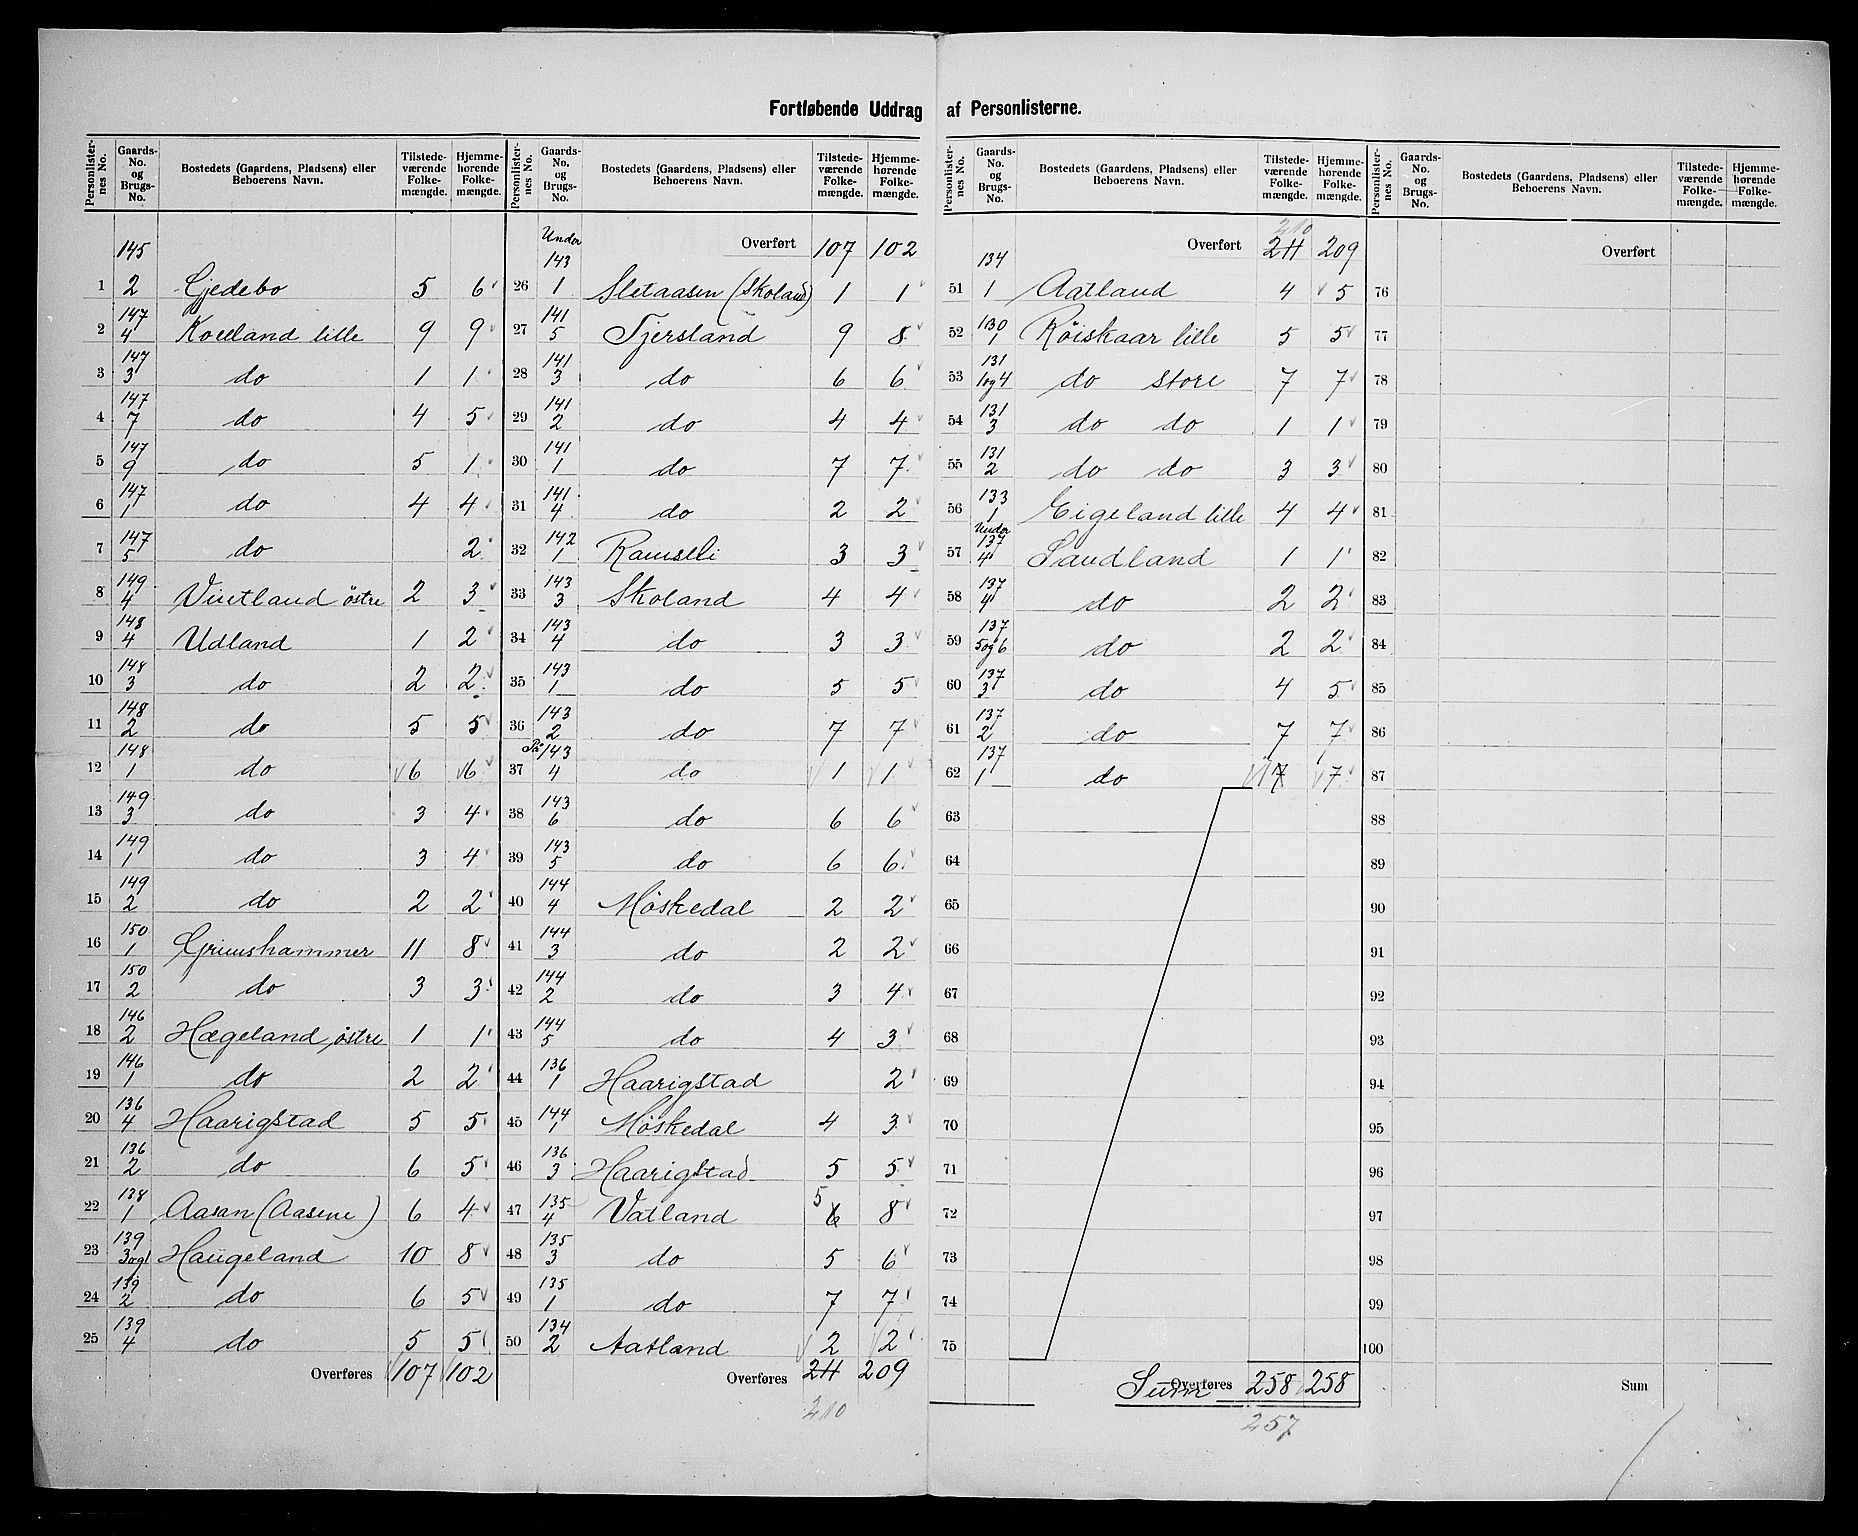 Fortløbende Uddrag af Personlisterne.
Personlister-nes No. | Gaards-No. og Brugs-No. | Bostedets (Gaardens, Pladsens) eller Beboerens Navn. | Tilstede-værende Folke-mængde. | Hjemme-hørende Folke-mængde.
1 | 145 2 | Gjedebo | 5 | 6
2 | 147 4 | Koelland lille | 9 | 9
3 | 147 3 | do | 1 | 1
4 | 147 7 | do | 4 | 5
5 | 147 9 | do | 5 | 1
6 | 147 1 | do | 4 | 4
7 | 147 5 | do | | 2
8 | 149 4 | Vintland østre | 2 | 3
9 | 148 4 | Udland | 1 | 2
10 | 148 3 | do | 2 | 2
11 | 148 2 | do | 5 | 5
12 | 148 1 | do | 6 | 6
13 | 149 3 | do | 3 | 4
14 | 149 1 | do | 3 | 4
15 | 149 2 | do | 2 | 2
16 | 150 1 | Grimshammer | 11 | 8
17 | 150 2 | do | 3 | 3
18 | 146 2 | Hægeland, østre | 1 | 1
19 | 146 1 | do | 2 | 2
20 | 136 4 | Haarigstad | 5 | 5
21 | 136 2 | do | 6 | 5
22 | 138 1 | Aasan (Aasene) | 6 | 4
23 | 139 3og1 | Haugeland | 10 | 8
24 | 139 2 | do | 6 | 5
25 | 139 4 | do | 5 | 5
Overføres 107 102
Personlister-nes No. | Gaards-No. og Brugs-No. | Bostedets (Gaardens, Pladsens) eller Beboerens Navn. | Tilstede-værende Folke-mængde. | Hjemme-hørende Folke-mængde.
Overført 107 102
26 | Under 143 1 | Sletaasen (Skoland) | 1 | 1
27 | 141 5 | Tjersland | 9 | 8
28 | 141 3 | do | 6 | 6
29 | 141 2 | do | 4 | 4
30 | 141 1 | do | 7 | 7
31 | 141 4 | do | 2 | 2
32 | 142 1 | Ramsli | 3 | 3
33 | 143 3 | Skoland | 4 | 4
34 | 143 4 | do | 3 | 3
35 | 143 1 | do | 5 | 5
36 | 143 2 | do | 7 | 7
37 | Paa 143 4 | do | 1 | 1
38 | 143 6 | do | 6 | 6
39 | 143 5 | do | 6 | 6
40 | 144 4 | Møskedal | 2 | 2
41 | 144 3 | do | 2 | 2
42 | 144 2 | do | 3 | 4
43 | 144 5 | do | 4 | 3
44 | 136 1 | Haarigstad | | 2
45 | 144 1 | Møskedal | 4 | 3
46 | 136 3 | Haarigstad | 5 | 5
47 | 135 4 | Vatland | 5 6 | 8
48 | 135 3 | do | 5 | 6
49 | 135 1 | do | 7 | 7
50 | 134 2 | Aatland | 2 | 2
Overføres 211 209
210
Personlister-nes No. | Gaards-No. og Brugs-No. | Bostedets (Gaardens, Pladsens) eller Beboerens Navn. | Tilstede-værende Folke-mængde. | Hjemme-hørende Folke-mængde.
210
Overført 211 209
51 | 134 1 | Aatland | 4 | 5
52 | 130 1 | Røiskaar lille | 5 | 5
53 | 131 1og4 | do store | 7 | 7
54 | 131 3 | do do | 1 | 1
55 | 131 2 | do do | 3 | 3
56 | 133 1 | Eigeland lille | 4 | 4
57 | Under 137 4 | Sandland | 1 | 1
58 | 137 4 | do | 2 | 2
59 | 137 5og6 | do | 2 | 2
60 | 137 3 | do | 4 | 5
61 | 137 2 | do | 7 | 7
62 | 137 1 | do | 7 | 7
63
64
65
66
67
68
69
70
71
72
73
74
75
Sum Overføres 258 258
257
Personlister-nes No. | Gaards-No. og Brugs-No. | Bostedets (Gaardens, Pladsens) eller Beboerens Navn. | Tilstede-værende Folke-mængde. | Hjemme-hørende Folke-mængde.
Overført
76
77
78
79
80
81
82
83
84
85
86
87
88
89
90
91
92
93
94
95
96
97
98
99
100
Sum